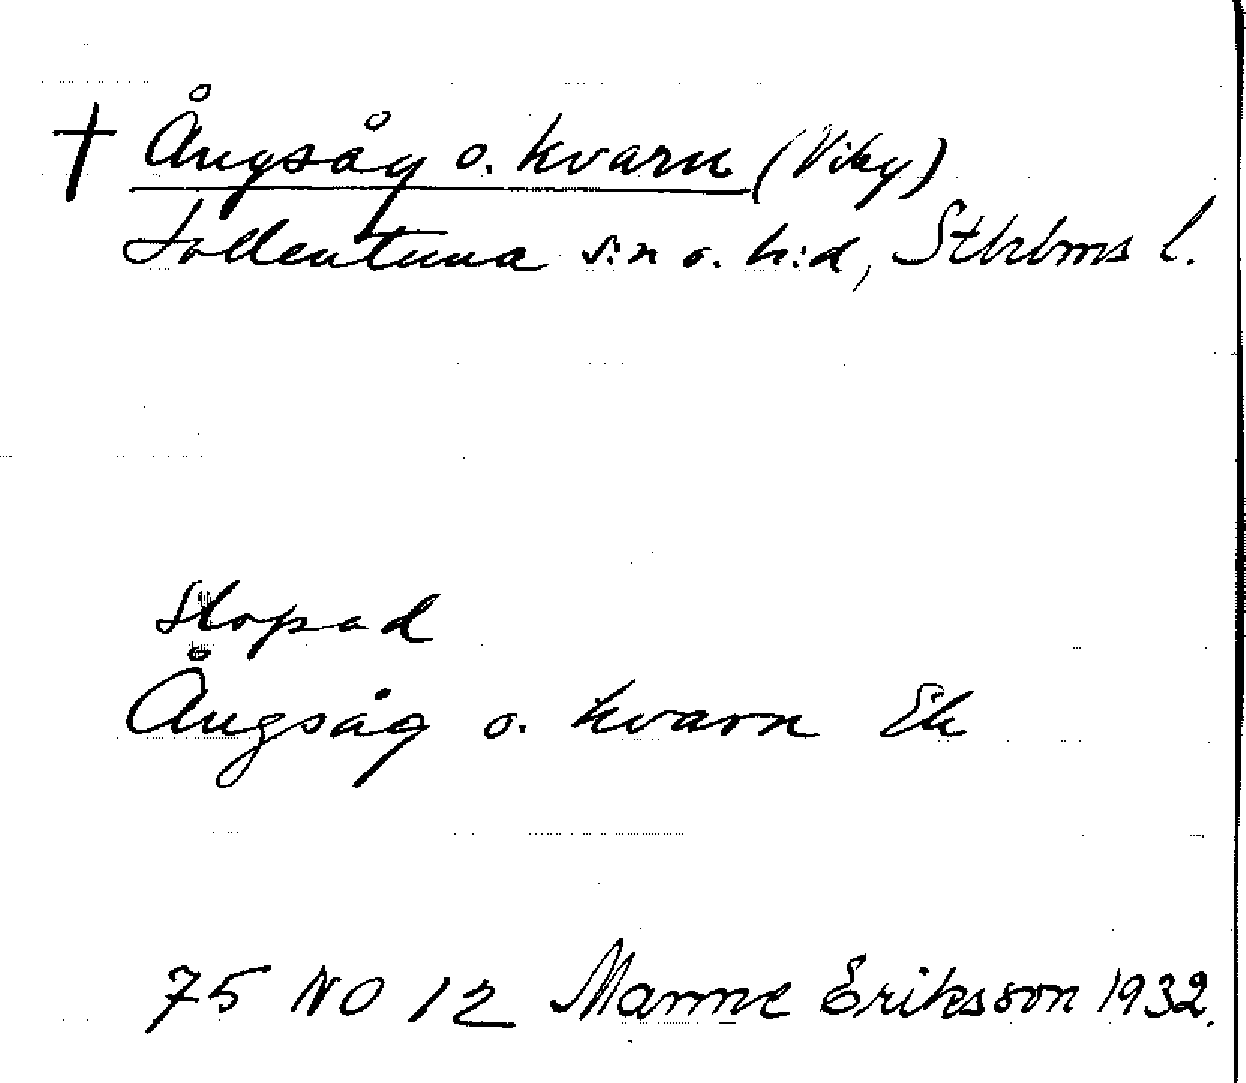 † Ångsåg o. kvarn (Viby)
Sollentuna s:n o. h:d, Sthlms l.
Slopad
Ångsåg o. kvarn Ek
75 NO 12 Manne Eriksson 1932.